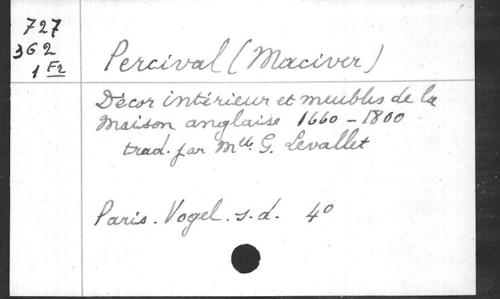 727
362
1 F2
Percival (Maciver)
Décor intérieur et meubles de la
maison anglaise 1660 - 1800
trad. par Mlle G. Levallet
Paris. Vogel. s.d. 4°